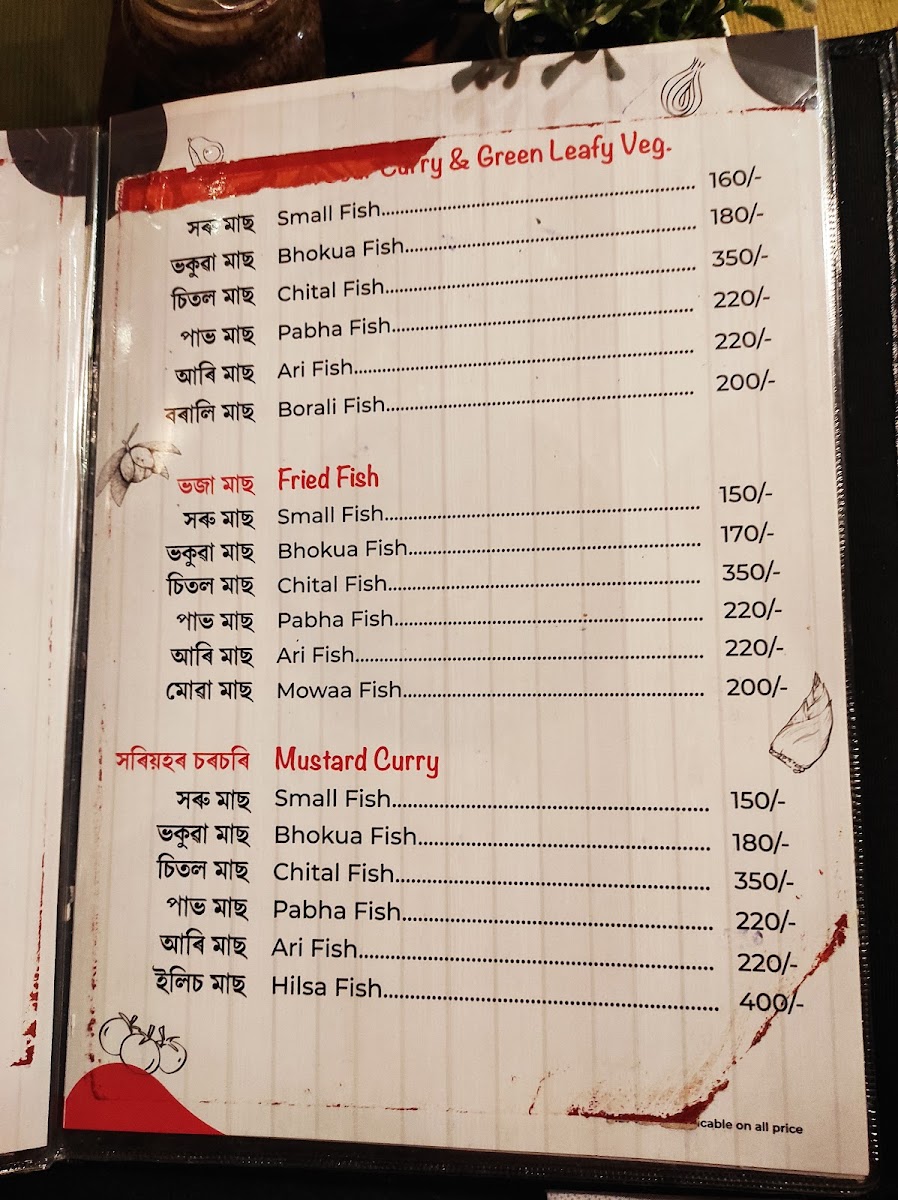 Curry & Green Leafy Veg.
সৰু মাছ Small Fish 160/-
ভকুৱা মাছ Bhokua Fish 180/-
চিতল মাছ Chital Fish 350/-
পাভ মাছ Pabha Fish 220/-
আৰি মাছ Ari Fish 220/-
বৰালি মাছ Borali Fish 200/-
ভজা মাছ Fried Fish
সৰু মাছ Small Fish 150/-
ভকুৱা মাছ Bhokua Fish 170/-
চিতল মাছ Chital Fish 350/-
পাভ মাছ Pabha Fish 220/-
আৰি মাছ Ari Fish 220/-
মোৱা মাছ Mowaa Fish 200/-
সৰিয়হৰ চৰচৰি Mustard Curry
সৰু মাছ Small Fish 150/-
ভকুৱা মাছ Bhokua Fish 180/-
চিতল মাছ Chital Fish 350/-
পাভ মাছ Pabha Fish 220/-
আৰি মাছ Ari Fish 220/-
ইলিচ মাছ Hilsa Fish 400/-
cable on all price